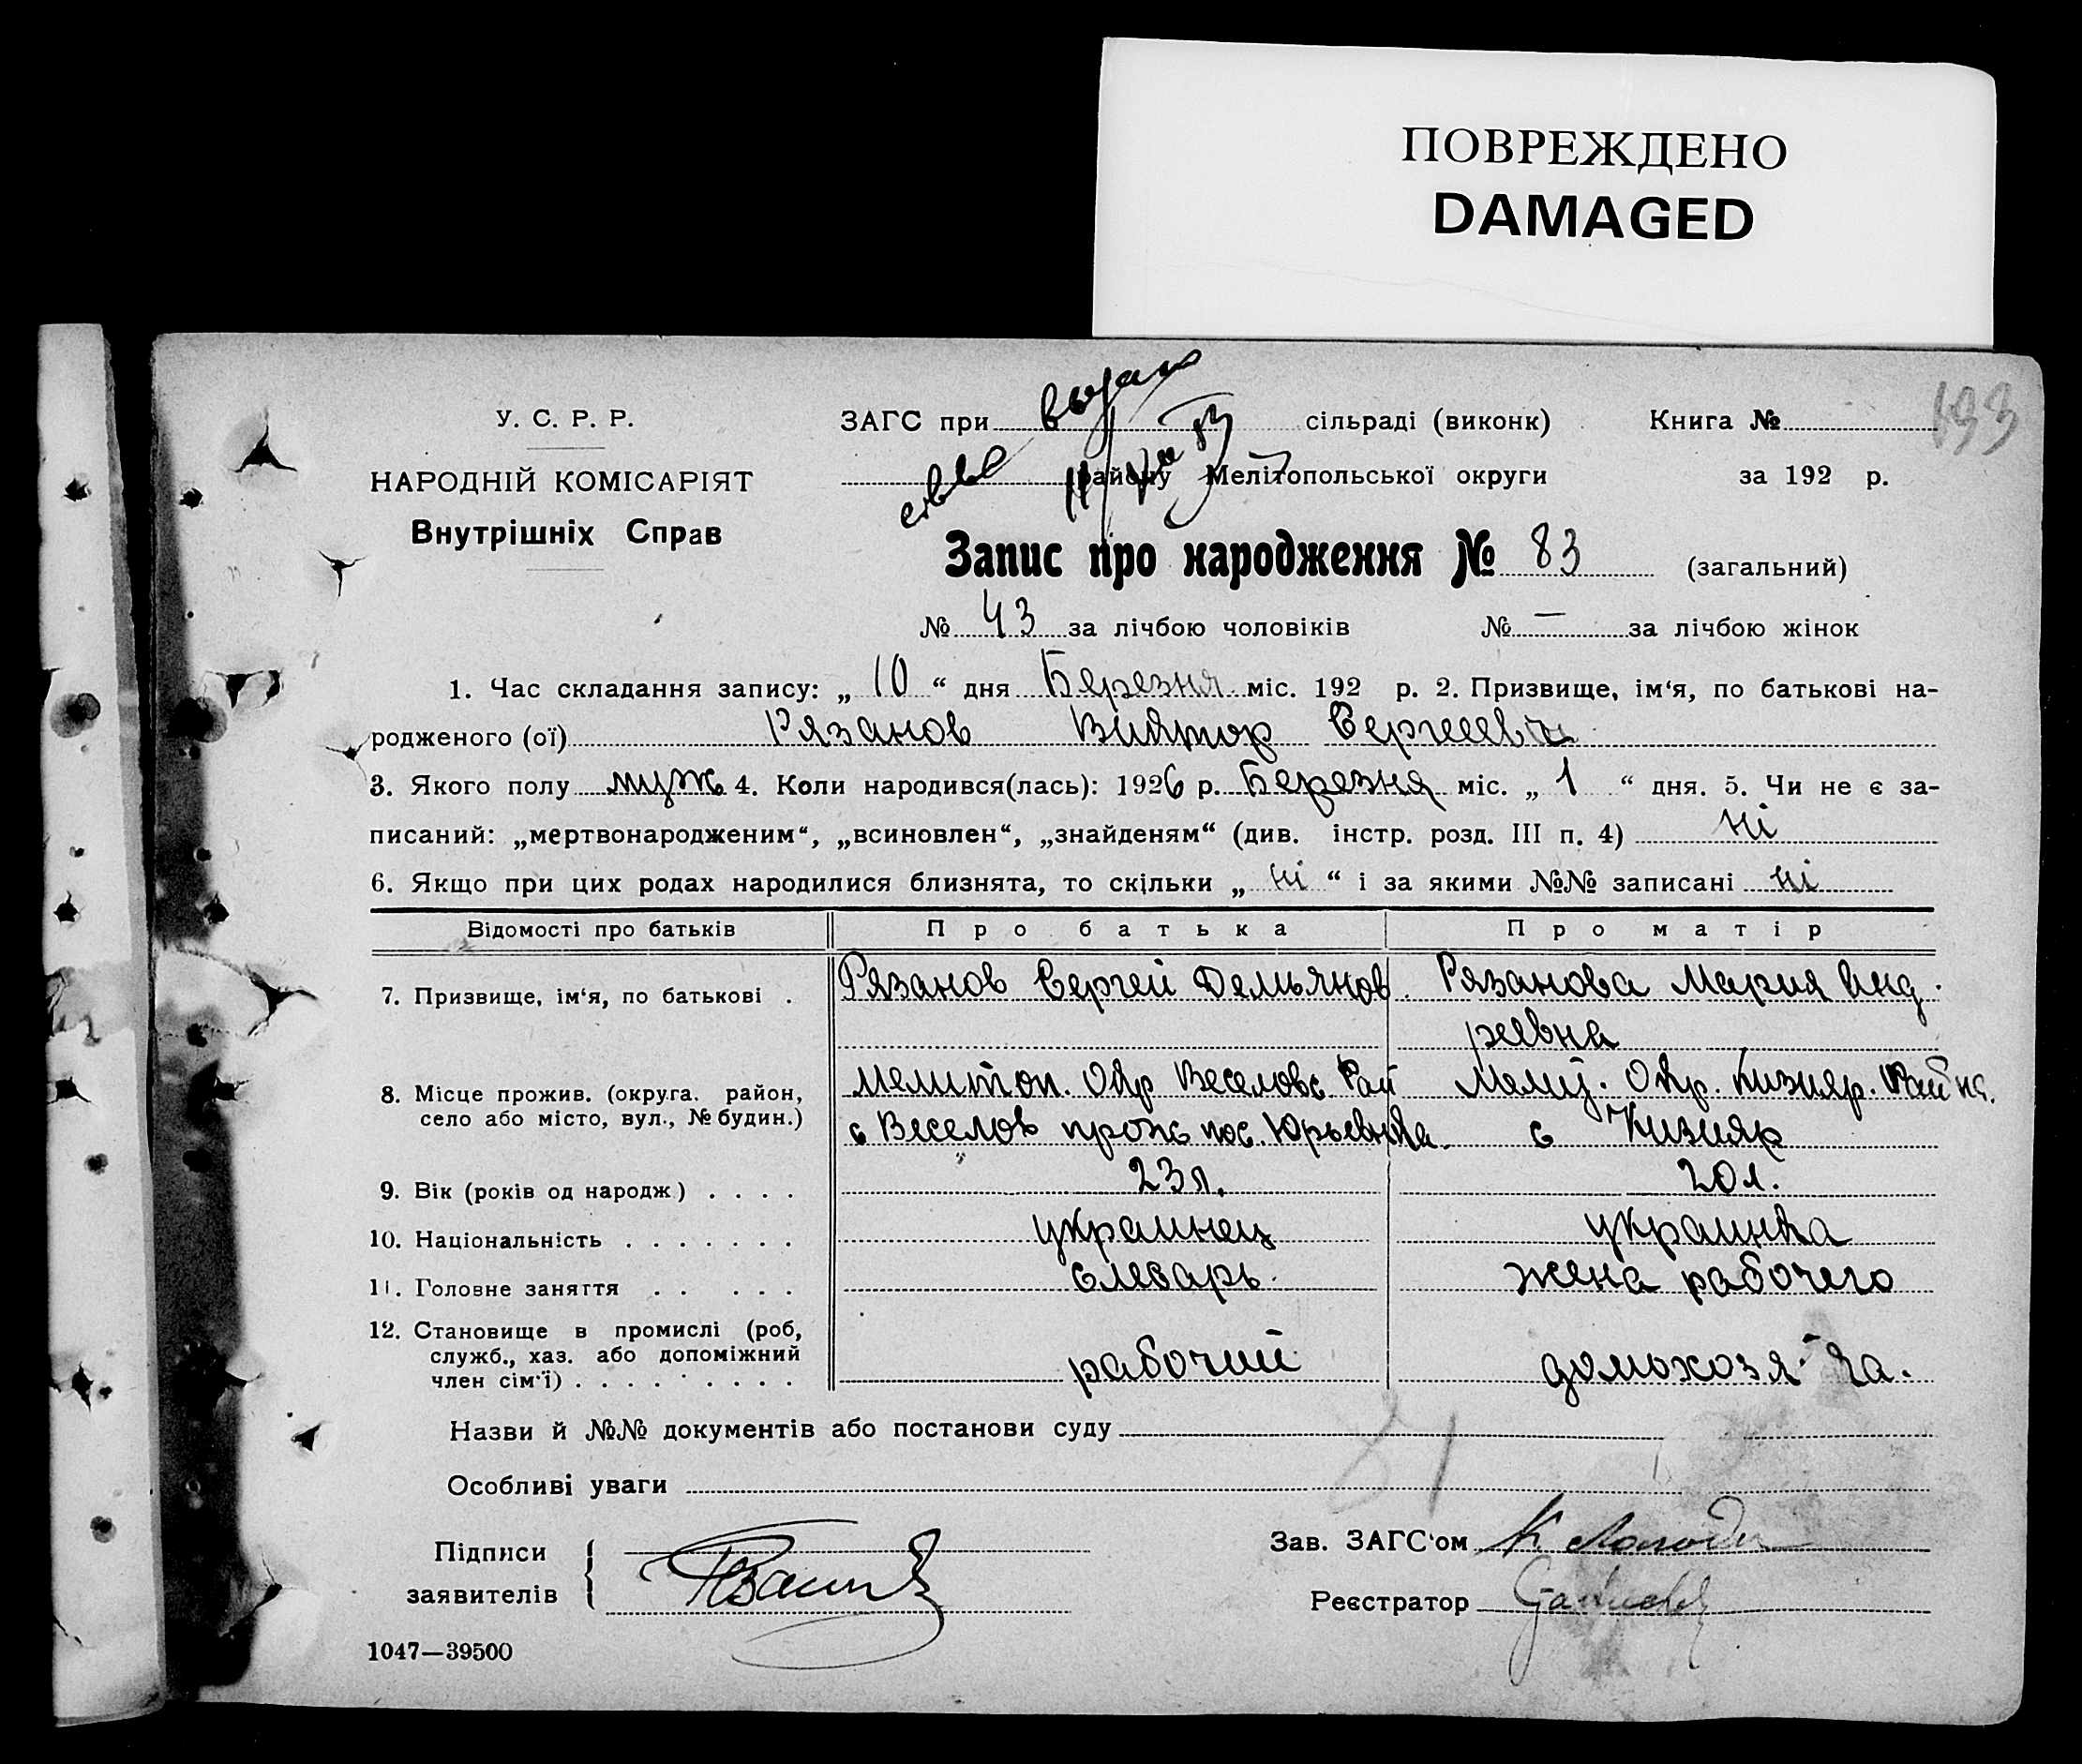 ПОВРЕЖДЕНО
DAMAGED
193
У. С. Р. Р.
НАРОДНІЙ КОМІСАРІЯТ
Внутрішніх Справ
ЗАГС при сільраді (виконк) Книга №
району Мелітопольської округи за 192 р.
Запис про народження № 83 (загальний)
№ 43 за лічбою чоловіків № — за лічбою жінок
1. Час складання запису: „ 10 “ дня Березня міс. 192 р. 2. Призвище, ім‘я, по батькові на-
родженого (ої) Рязанов Виктор Сергеевич
3. Якого полу муж 4. Коли народився(лась): 1926 р. Березня міс. „ 1 “ дня. 5. Чи не є за-
писаний: „мертвонародженим“, „всиновлен“, „знайденям“ (див. інстр. розд. III п. 4) ні
6. Якщо при цих родах народилися близнята, то скільки „ ні “ і за якими №№ записані ні
Відомості про батьків Про батька Про матір
7. Призвище, ім‘я, по батькові . Рязанов Сергей Демьянов. Рязанова Мария Анд.
ревна
8. Місце прожив. (округа. район, Мелитоп. Окр Веселовс Рай Мелит. Окр. Кизияр. Район.
село або місто, вул., № будин.) с Веселов прож пос. Юрьевка с Кизияр
9. Вік (років од народж) . . . . 23 л. 20 л.
10. Національність . . . . . . . украинец украинка
11. Головне заняття . . . . . слесарь. жена рабочего
12. Становище в промислі (роб,
служб., хаз. або допоміжний рабочий домохозя-ка.
член сім‘ї) . . . . . . . . .
Назви й №№ документів або постанови суду
Особливі уваги
Підписи
заявителів
Зав. ЗАГС‘ом
Реєстратор
1047—39500